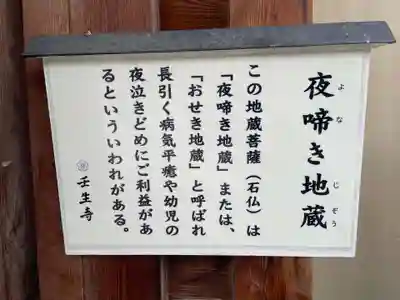 夜啼き地蔵
よな じぞう
この地蔵菩薩（石仏）は
「夜啼き地蔵」または、
「おせき地蔵」と呼ばれ
長引く病気平癒や幼児の
夜泣きどめにご利益があ
るといういわれがある。
壬生寺